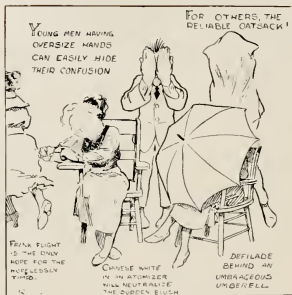 YOUNG MEN HAVING
OVERSIZE HANDS
CAN EASILY HIDE
THEIR CONFUSION
FOR OTHERS, THE
RELIABLE OATSACK!
FRANK FLIGHT
IS THE ONLY
HOPE FOR THE
HOPELESSLY
TIMID.
CHINESE WHITE
IN AN ATOMIZER
WILL NEUTRALIZE
THE SUDDEN BLUSH
DEFILADE
BEHIND AN
UMBRAGEOUS
UMBERELL